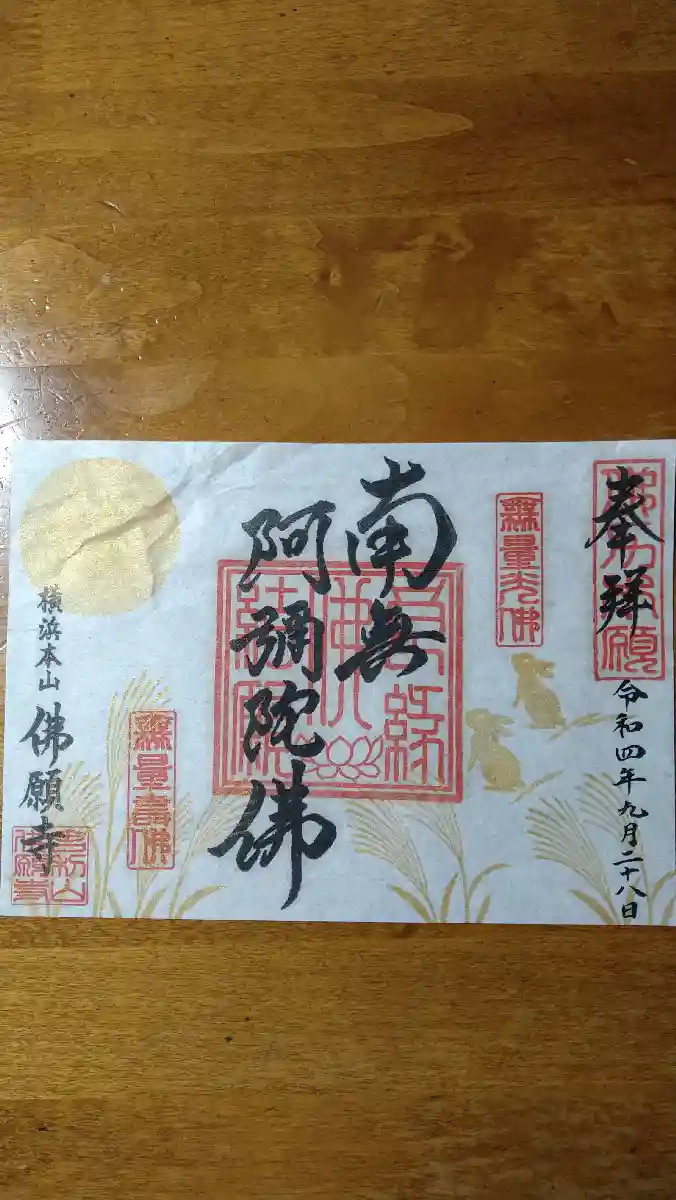 奉拝
令和四年九月二十八日
無量光佛
南無
阿彌陀佛
無量壽佛
横浜本山
佛願寺